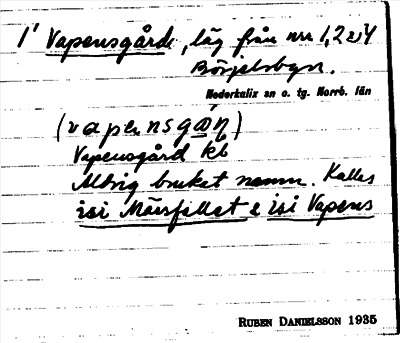 1' Vapensgårde, låg från nr 1, 2 o 4
Börjelsbyn.
Nederkalix sn o. tg. Norrb. län
(vapensgaṇ)
Vapensgård kb
Aldrig brukat namn. Kallas
isi Mårsfallet &amp; isi Vapens
RUBEN DANIELSSON 1935